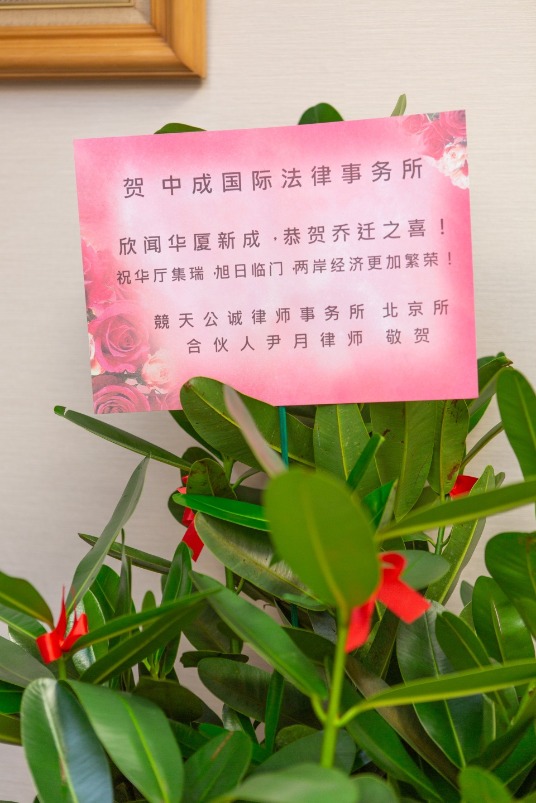 贺 中成国际法律事务所
欣闻华厦新成，恭贺乔迁之喜！
祝华厅集瑞，旭日临门，两岸经济更加繁荣！
競天公诚律师事务所 北京所
合伙人尹月律师 敬贺